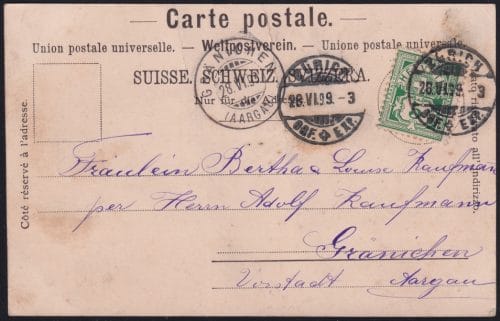 Carte postale.
Union postale universelle. — Weltpostverein. — Unione postale universale.
SUISSE. SCHWEIZ. SVIZZERA.
Nur für
GRÄNICHEN
28.VI.99
(AARGAU)
ZÜRICH
28.VI.99.-3
BRF. EXP.
ZÜRICH
28.VI.99.-3
BRF. EXP.
Côté réservé à l'adresse.
Fräulein Bertha & Louise Kaufmann
per Herrn Adolf Kaufmann
Gränichen
Vorstadt Aargau